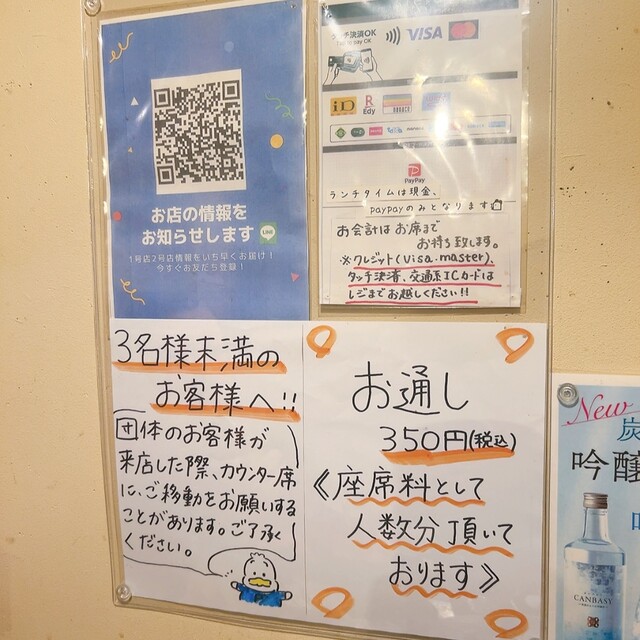 お店の情報を
お知らせします
LINE
1号店2号店情報をいち早くお届け！
今すぐお友だち登録！
タッチ決済OK
VISA
iD
R
Edy
PayPay
ランチタイムは現金、
PayPayのみとなります
お会計はお席まで
お持ち致します。
※クレジット(Visa.master)、
タッチ決済、交通系ICカードは
レジまでお越しください!!
3名様未満の
お客様へ!!
団体のお客様が
来店した際、カウンター席
に、ご移動をお願いする
ことがあります。ご了承
ください。
お通し
350円(税込)
《座席料として
人数分頂いて
おります》
New
炭
吟醸
CANBASY